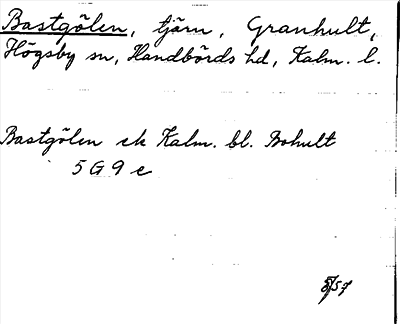 Bastgölen, tjärn, Granhult,
Högsby sn, Handbörds hd, Kalm. l.
Bastgölen ek Kalm. bl. Bohult
5 G 9 e